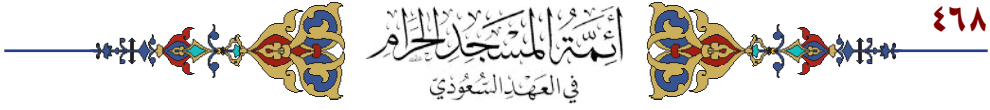 ٤٦٨
أَئِمَّةُ المَسْجِدِ الحَرَامِ
في العَهْدِ السُّعُودِيّ